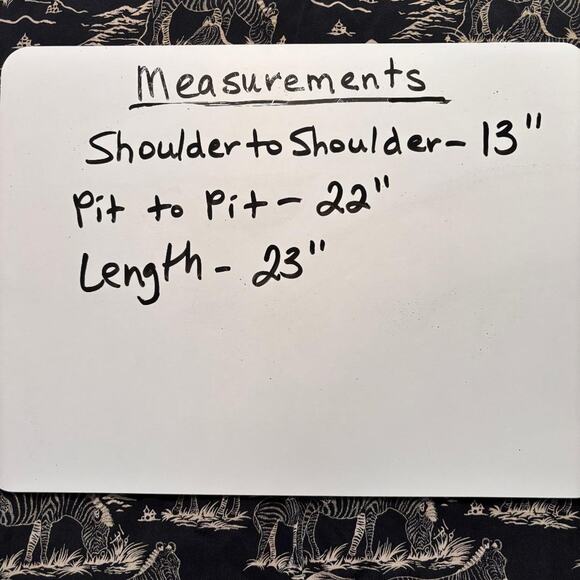 Measurements
Shoulder to Shoulder - 13"
Pit to Pit - 22"
Length - 23"